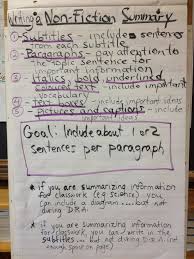 Writing a Non-Fiction Summary
① Subtitles - include sentences
from each subtitle
② Paragraphs - pay attention to
the topic sentence for
important information
③ Italics, bold, underlined
coloured text - include important
vocabulary
④ Text boxes - important ideas
⑤ Pictures and captions - include
important ideas
Goal: Include about 1 or 2
sentences per paragraph
★ if you are summarizing information
for classwork (eg Science) you
can include a diagram ... but not
during DRA.
★ if you are summarizing information
for classwork, you can write in the
subtitles ... but not during DRA (not
enough space on page)